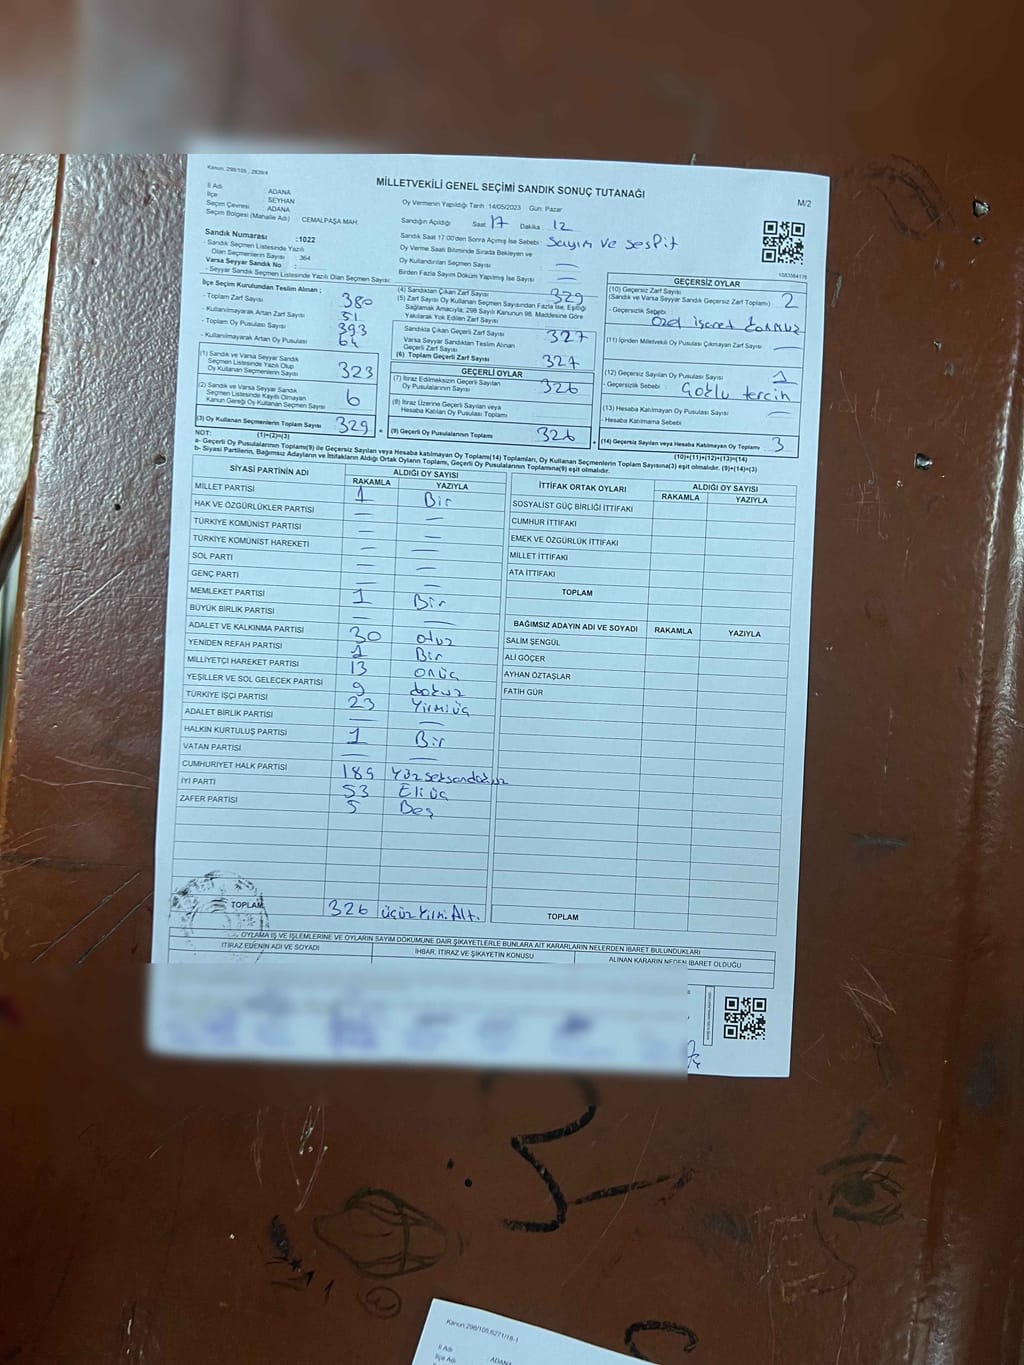 Kanun: 298/105 , 2839/4
MİLLETVEKİLİ GENEL SEÇİMİ SANDIK SONUÇ TUTANAĞI
M/2
İl Adı ADANA
İlçe SEYHAN
Seçim Çevresi ADANA
Seçim Bölgesi (Mahalle Adı) : CEMALPAŞA MAH.
Oy Vermenin Yapıldığı Tarih :14/05/2023 Gün: Pazar
Sandığın Açıldığı Saat: 17 Dakika : 12
Sandık Saat 17:00'den Sonra Açımış İse Sebebi : Sayım ve tespit
Oy Verme Saati Bitiminde Sırada Bekleyen ve
Oy Kullandırılan Seçmen Sayısı : —
Birden Fazla Sayım Döküm Yapılmış İse Sayısı : —
Sandık Numarası :1022
- Sandık Seçmen Listesinde Yazılı
Olan Seçmenlerin Sayısı : 364
Varsa Seyyar Sandık No :
- Seyyar Sandık Seçmen Listesinde Yazılı Olan Seçmen Sayısı:
İlçe Seçim Kurulundan Teslim Alınan ;
- Toplam Zarf Sayısı 380
- Kullanılmayarak Artan Zarf Sayısı 51
- Toplam Oy Pusulası Sayısı 393
- Kullanılmayarak Artan Oy Pusulası 64
(1) Sandık ve Varsa Seyyar Sandık
Seçmen Listesinde Yazılı Olup
Oy Kullanan Seçmenlerin Sayısı 323
(2) Sandık ve Varsa Seyyar Sandık
Seçmen Listesinde Kayıtlı Olmayan
Kanun Gereği Oy Kullanan Seçmen Sayısı 6
(3) Oy Kullanan Seçmenlerin Toplam Sayısı 329
(4) Sandıktan Çıkan Zarf Sayısı 329
(5) Zarf Sayısı Oy Kullanan Seçmen Sayısından Fazla İse, Eşitliği
Sağlamak Amacıyla; 298 Sayılı Kanunun 98. Maddesine Göre
Yakılarak Yok Edilen Zarf Sayısı
Sandıkta Çıkan Geçerli Zarf Sayısı 327
Varsa Seyyar Sandıktan Teslim Alınan
Geçerli Zarf Sayısı
(6) Toplam Geçerli Zarf Sayısı 327
GEÇERLİ OYLAR
(7) İtiraz Edilmeksizin Geçerli Sayılan
Oy Pusulalarının Sayısı 326
(8) İtiraz Üzerine Geçerli Sayılan veya
Hesaba Katılan Oy Pusulası Toplamı
(9) Geçerli Oy Pusulalarının Toplamı 326
1083584176
GEÇERSİZ OYLAR
(10) Geçersiz Zarf Sayısı
(Sandık ve Varsa Seyyar Sandık Geçersiz Zarf Toplamı) 2
- Geçersizlik Sebebi : Özel işaret
(11) İçinden Milletvekili Oy Pusulası Çıkmayan Zarf Sayısı —
(12) Geçersiz Sayılan Oy Pusulası Sayısı 1
- Geçersizlik Sebebi : Çoğlu tercih
(13) Hesaba Katılmayan Oy Pusulası Sayısı —
- Hesaba Katılmama Sebebi :
(14) Geçersiz Sayılan veya Hesaba Katılmayan Oy Toplamı 3
NOT: (1)+(2)=(3) (10)+(11)+(12)+(13)=(14)
a- Geçerli Oy Pusulalarının Toplamı(9) ile Geçersiz Sayılan veya Hesaba katılmayan Oy Toplam(14) Toplamları, Oy Kullanan Seçmenlerin Toplam Sayısına(3) eşit olmalıdır. (9)+(14)=(3)
b- Siyasi Partilerin, Bağımsız Adayların ve İttifakların Aldığı Ortak Oyların Toplamı, Geçerli Oy Pusulalarının Toplamına(9) eşit olmalıdır.
SİYASİ PARTİNİN ADI ALDIĞI OY SAYISI
RAKAMLA YAZIYLA
MİLLET PARTİSİ 1 Bir
HAK VE ÖZGÜRLÜKLER PARTİSİ — —
TÜRKİYE KOMÜNİST PARTİSİ — —
TÜRKİYE KOMÜNİST HAREKETİ — —
SOL PARTİ — —
GENÇ PARTİ — —
MEMLEKET PARTİSİ 1 Bir
BÜYÜK BİRLİK PARTİSİ — —
ADALET VE KALKINMA PARTİSİ 30 otuz
YENİDEN REFAH PARTİSİ 1 Bir
MİLLİYETÇİ HAREKET PARTİSİ 13 onüç
YEŞİLLER VE SOL GELECEK PARTİSİ 9 dokuz
TÜRKİYE İŞÇİ PARTİSİ 23 Yirmiüç
ADALET BİRLİK PARTİSİ — —
HALKIN KURTULUŞ PARTİSİ 1 Bir
VATAN PARTİSİ — —
CUMHURİYET HALK PARTİSİ 189 Yüzseksendokuz
İYİ PARTİ 53 Elliüç
ZAFER PARTİSİ 5 Beş
TOPLAM 326 üçüzYirm.Alt.
İTTİFAK ORTAK OYLARI ALDIĞI OY SAYISI
RAKAMLA YAZIYLA
SOSYALİST GÜÇ BİRLİĞİ İTTİFAKI
CUMHUR İTTİFAKI
EMEK VE ÖZGÜRLÜK İTTİFAKI
MİLLET İTTİFAKI
ATA İTTİFAKI
TOPLAM
BAĞIMSIZ ADAYIN ADI VE SOYADI RAKAMLA YAZIYLA
SALİM ŞENGÜL
ALİ GÖÇER
AYHAN ÖZTAŞLAR
FATİH GÜR
TOPLAM
OYLAMA İŞ VE İŞLEMLERİNE VE OYLARIN SAYIM DÖKÜMÜNE DAİR ŞİKAYETLERLE BUNLARA AİT KARARLARIN NELERDEN İBARET BULUNDUKLARI
İTİRAZ EDENİN ADI VE SOYADI İHBAR, İTİRAZ VE ŞİKAYETİN KONUSU ALINAN KARARIN NEDEN İBARET OLDUĞU
Kanun:298/105,6271/18-1
İl Adı
İlçe Adı ADANA